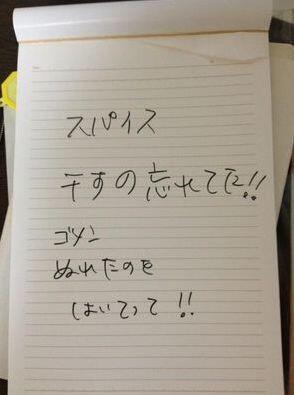 スパイス
干すの忘れてた!!
ゴメン
ぬれたのを
はいてって!!